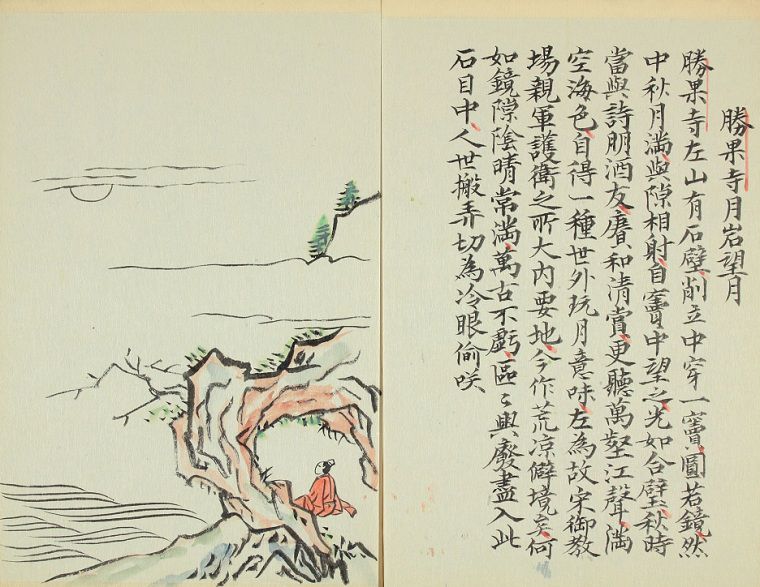 勝果寺月岩望月
勝果寺左山有石壁削立中穿一竇圓若鏡然
中秋月滿與隙相射自竇中望之光如合璧秋時
當與詩朋酒友賡和清賞更聽萬壑江聲滿
空海色自得一種世外玩月意味左為故宋御教
場親軍護衛之所大内要地今作荒凉僻境矣何
如鏡隙陰晴常滿萬古不虧區〻興廢盡入此
石目中人世搬弄切為冷眼偷咲